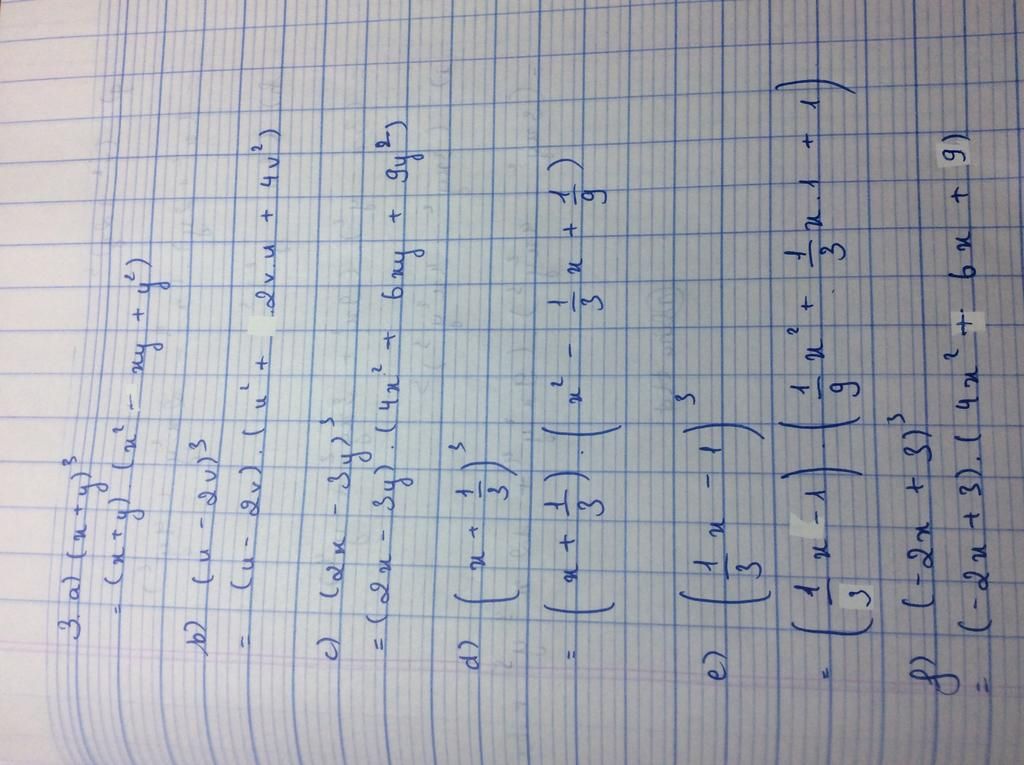 3.a) (x+y)³
= (x+y).(x² - xy + y²)
b) (u - 2v)³
= (u - 2v).(u² + 2vu + 4v²)
c) (2x - 3y)³
= (2x - 3y).(4x² + 6xy + 9y²)
d) (x + 1/3)³
= (x + 1/3).(x² - 1/3x + 1/9)
e) (1/3x - 1)³
= (1/3x - 1).(1/9x² + 1/3x.1 + 1)
f) (-2x + 3)³
= (-2x + 3).(4x² + 6x + 9)